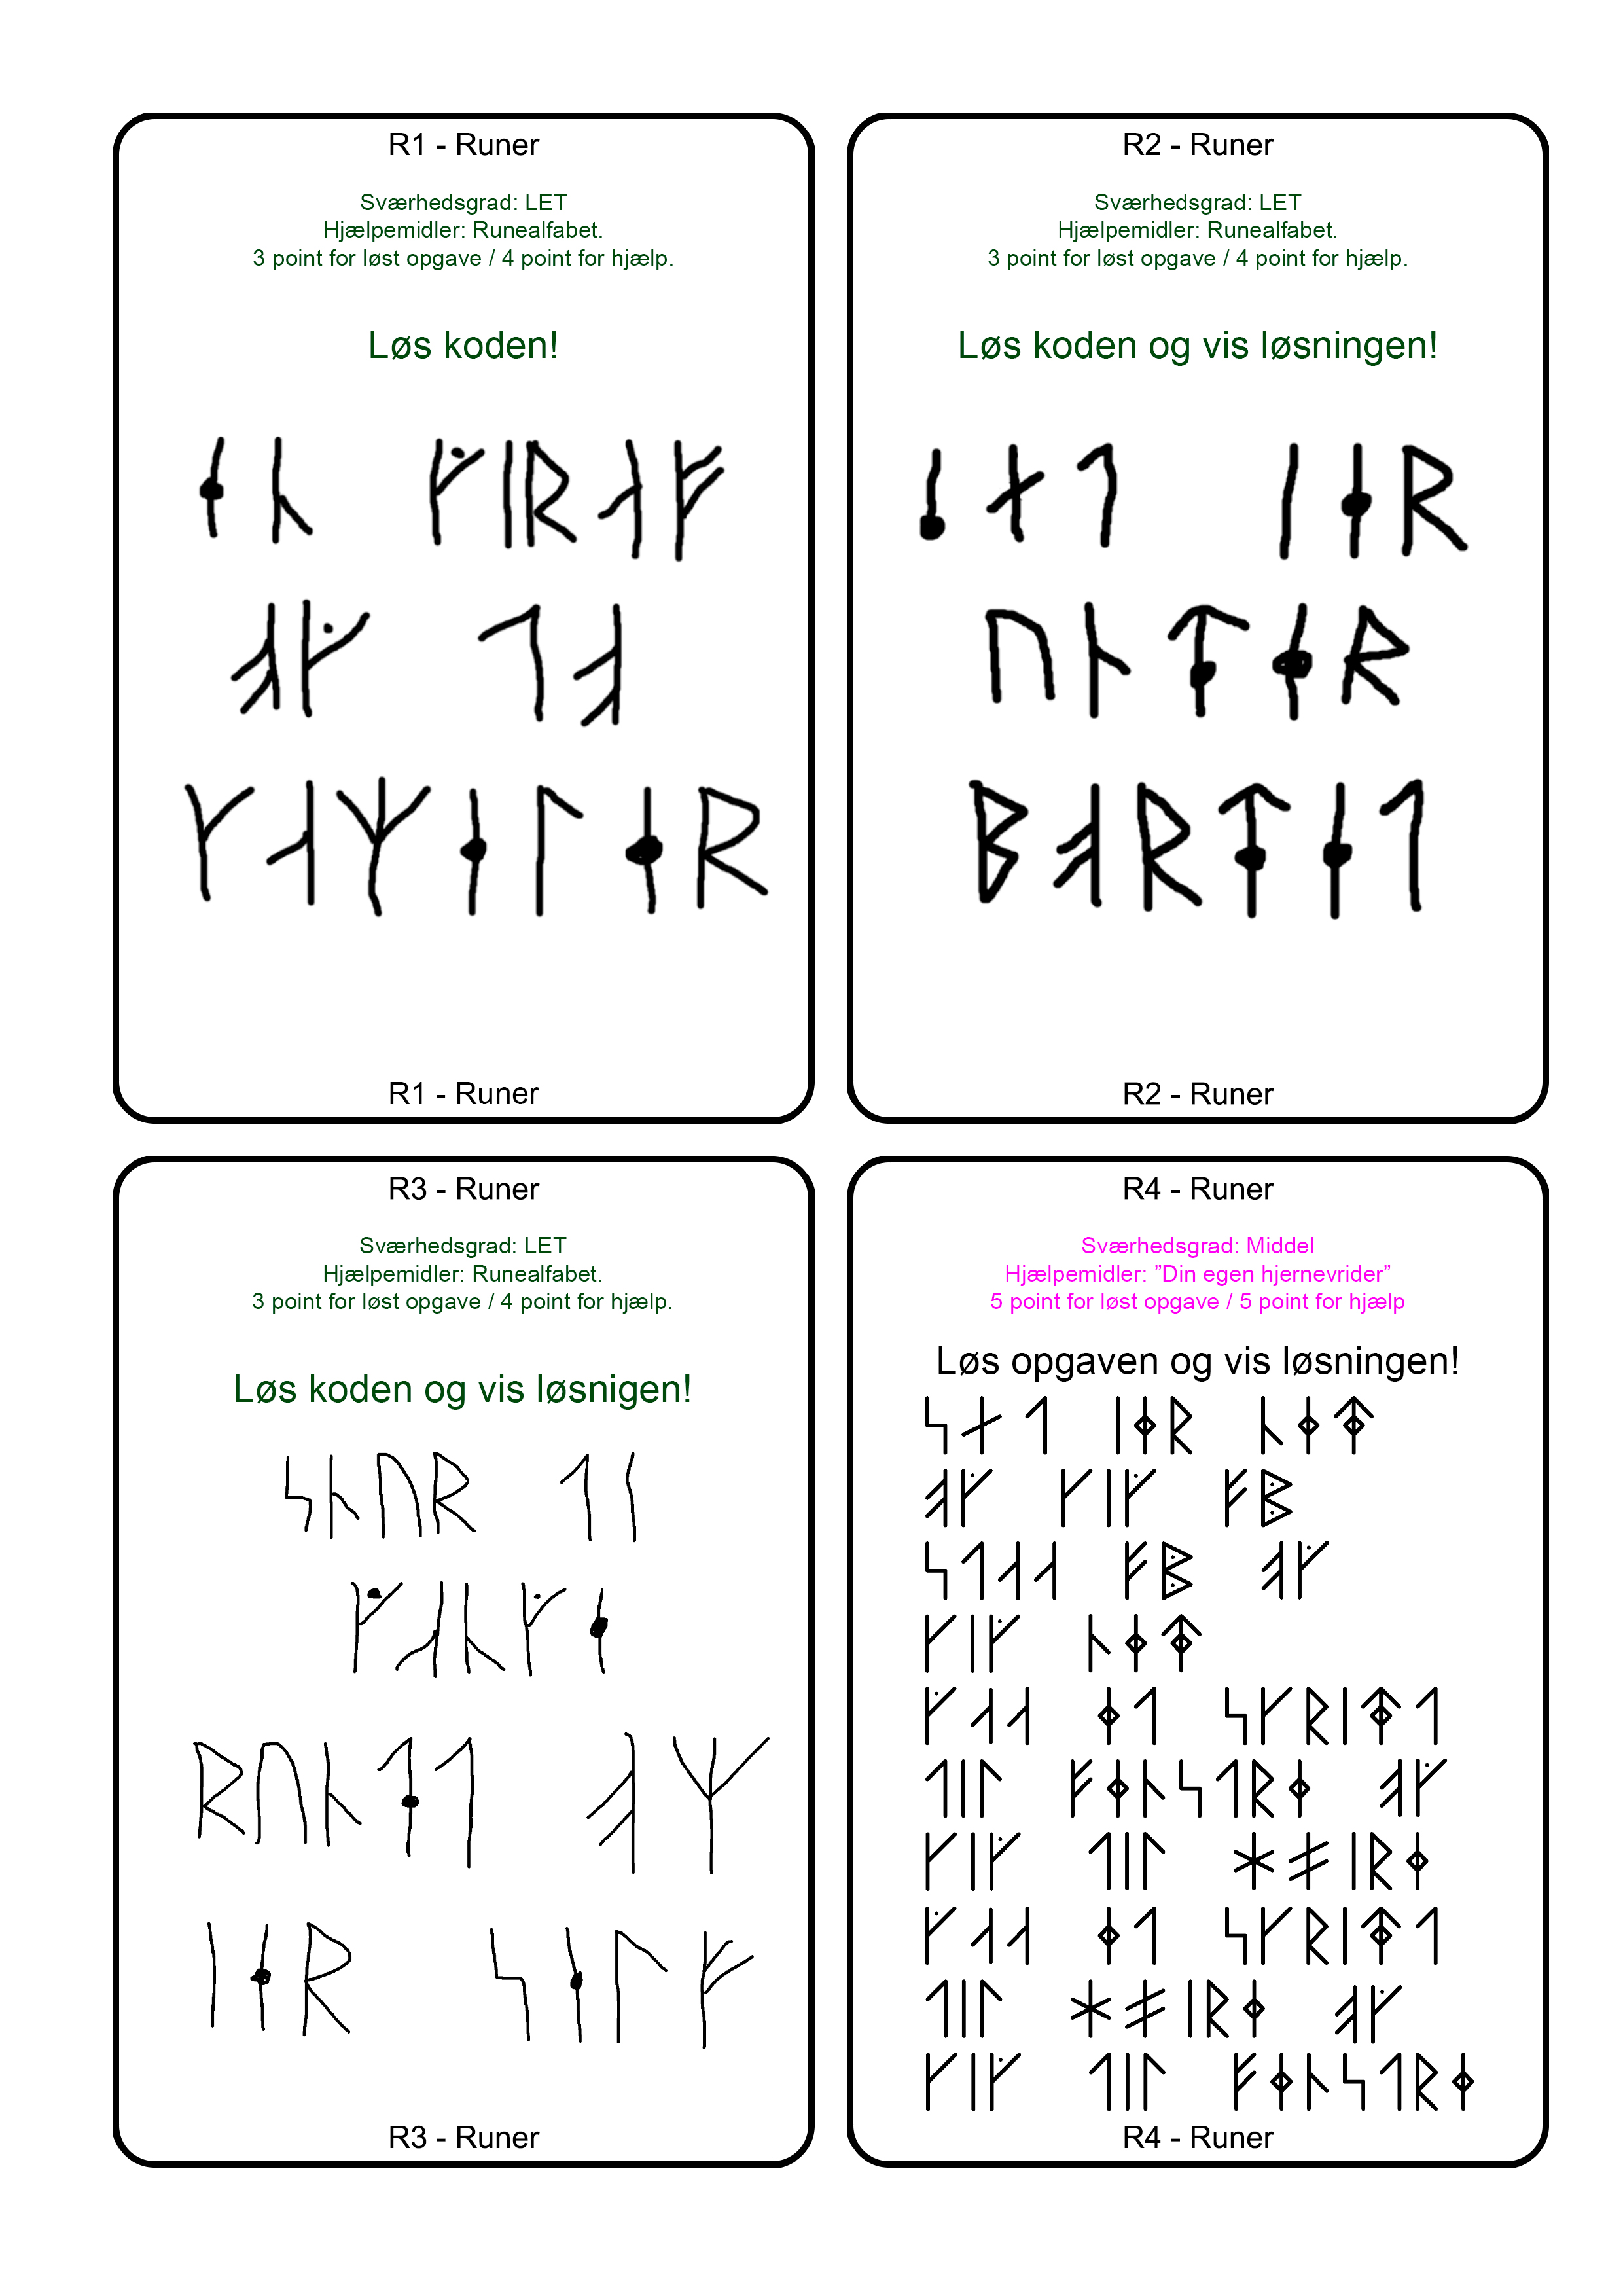 R1 - Runer
Sværhedsgrad: LET
Hjælpemidler: Runealfabet.
3 point for løst opgave / 4 point for hjælp.
Løs koden!
ᛂᚿ ᚵᛁᚱᛆᚠ
ᚮᚵ ᛐᚮ
ᚴᛆᛘᛂᛚᛂᚱ
R1 - Runer
R2 - Runer
Sværhedsgrad: LET
Hjælpemidler: Runealfabet.
3 point for løst opgave / 4 point for hjælp.
Løs koden og vis løsningen!
ᛍᛅᛐ ᛁᛂᚱ
ᚢᚿᛑᛂᚱ
ᛒᚮᚱᛑᛂᛐ
R2 - Runer
R3 - Runer
Sværhedsgrad: LET
Hjælpemidler: Runealfabet.
3 point for løst opgave / 4 point for hjælp.
Løs koden og vis løsnigen!
ᛋᚿᚢᚱ ᛐᛁ
ᚵᛆᚿᚵᛂ
ᚱᚢᚿᛑᛐ ᚮᛘ
ᛁᛂᚱ ᛋᛂᛚᚠ
R3 - Runer
R4 - Runer
Sværhedsgrad: Middel
Hjælpemidler: ”Din egen hjernevrider”
5 point for løst opgave / 5 point for hjælp
Løs opgaven og vis løsningen!
ᛋᛅᛐ ᛁᛂᚱ ᚿᛂᛑ
ᚮᚵ ᚴᛁᚵ ᚠᛔ
ᛋᛐᛆᛆ ᚠᛔ ᚮᚵ
ᚴᛁᚵ ᚿᛂᛑ
ᚵᛆᛆ ᛂᛐ ᛋᚴᚱᛁᛑᛐ
ᛐᛁᛚ ᚠᛂᚿᛋᛐᚱᛂ ᚮᚵ
ᚴᛁᚵ ᛐᛁᛚ ᚼᚯᛁᚱᛂ
ᚵᛆᛆ ᛂᛐ ᛋᚴᚱᛁᛑᛐ
ᛐᛁᛚ ᚼᚯᛁᚱᛂ ᚮᚵ
ᚴᛁᚵ ᛐᛁᛚ ᚠᛂᚿᛋᛐᚱᛂ
R4 - Runer